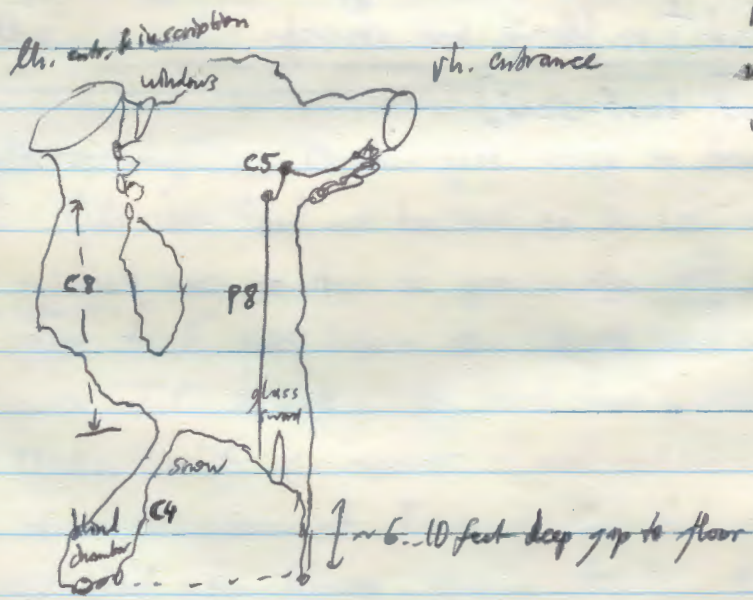 lh. entr. & inscription
windows
rh. entrance
C5
C8
P8
glass
sword
snow
C4
blind
chamber
~ 6..10 feet deep gap to floor